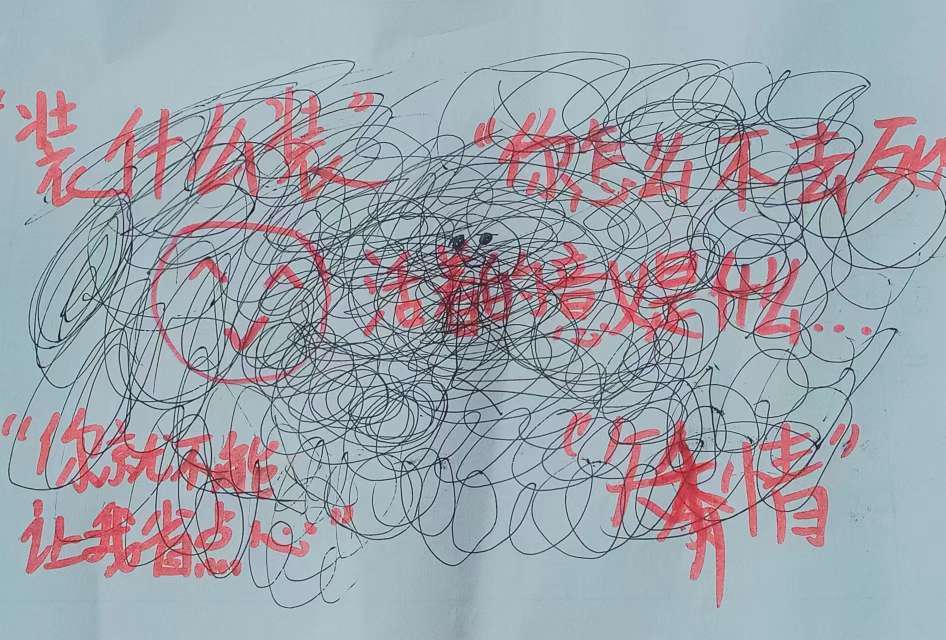 "装什么装"
"你怎么不去死
活着的意义是什么...
"你就不能
让我省点心"
"矫情"